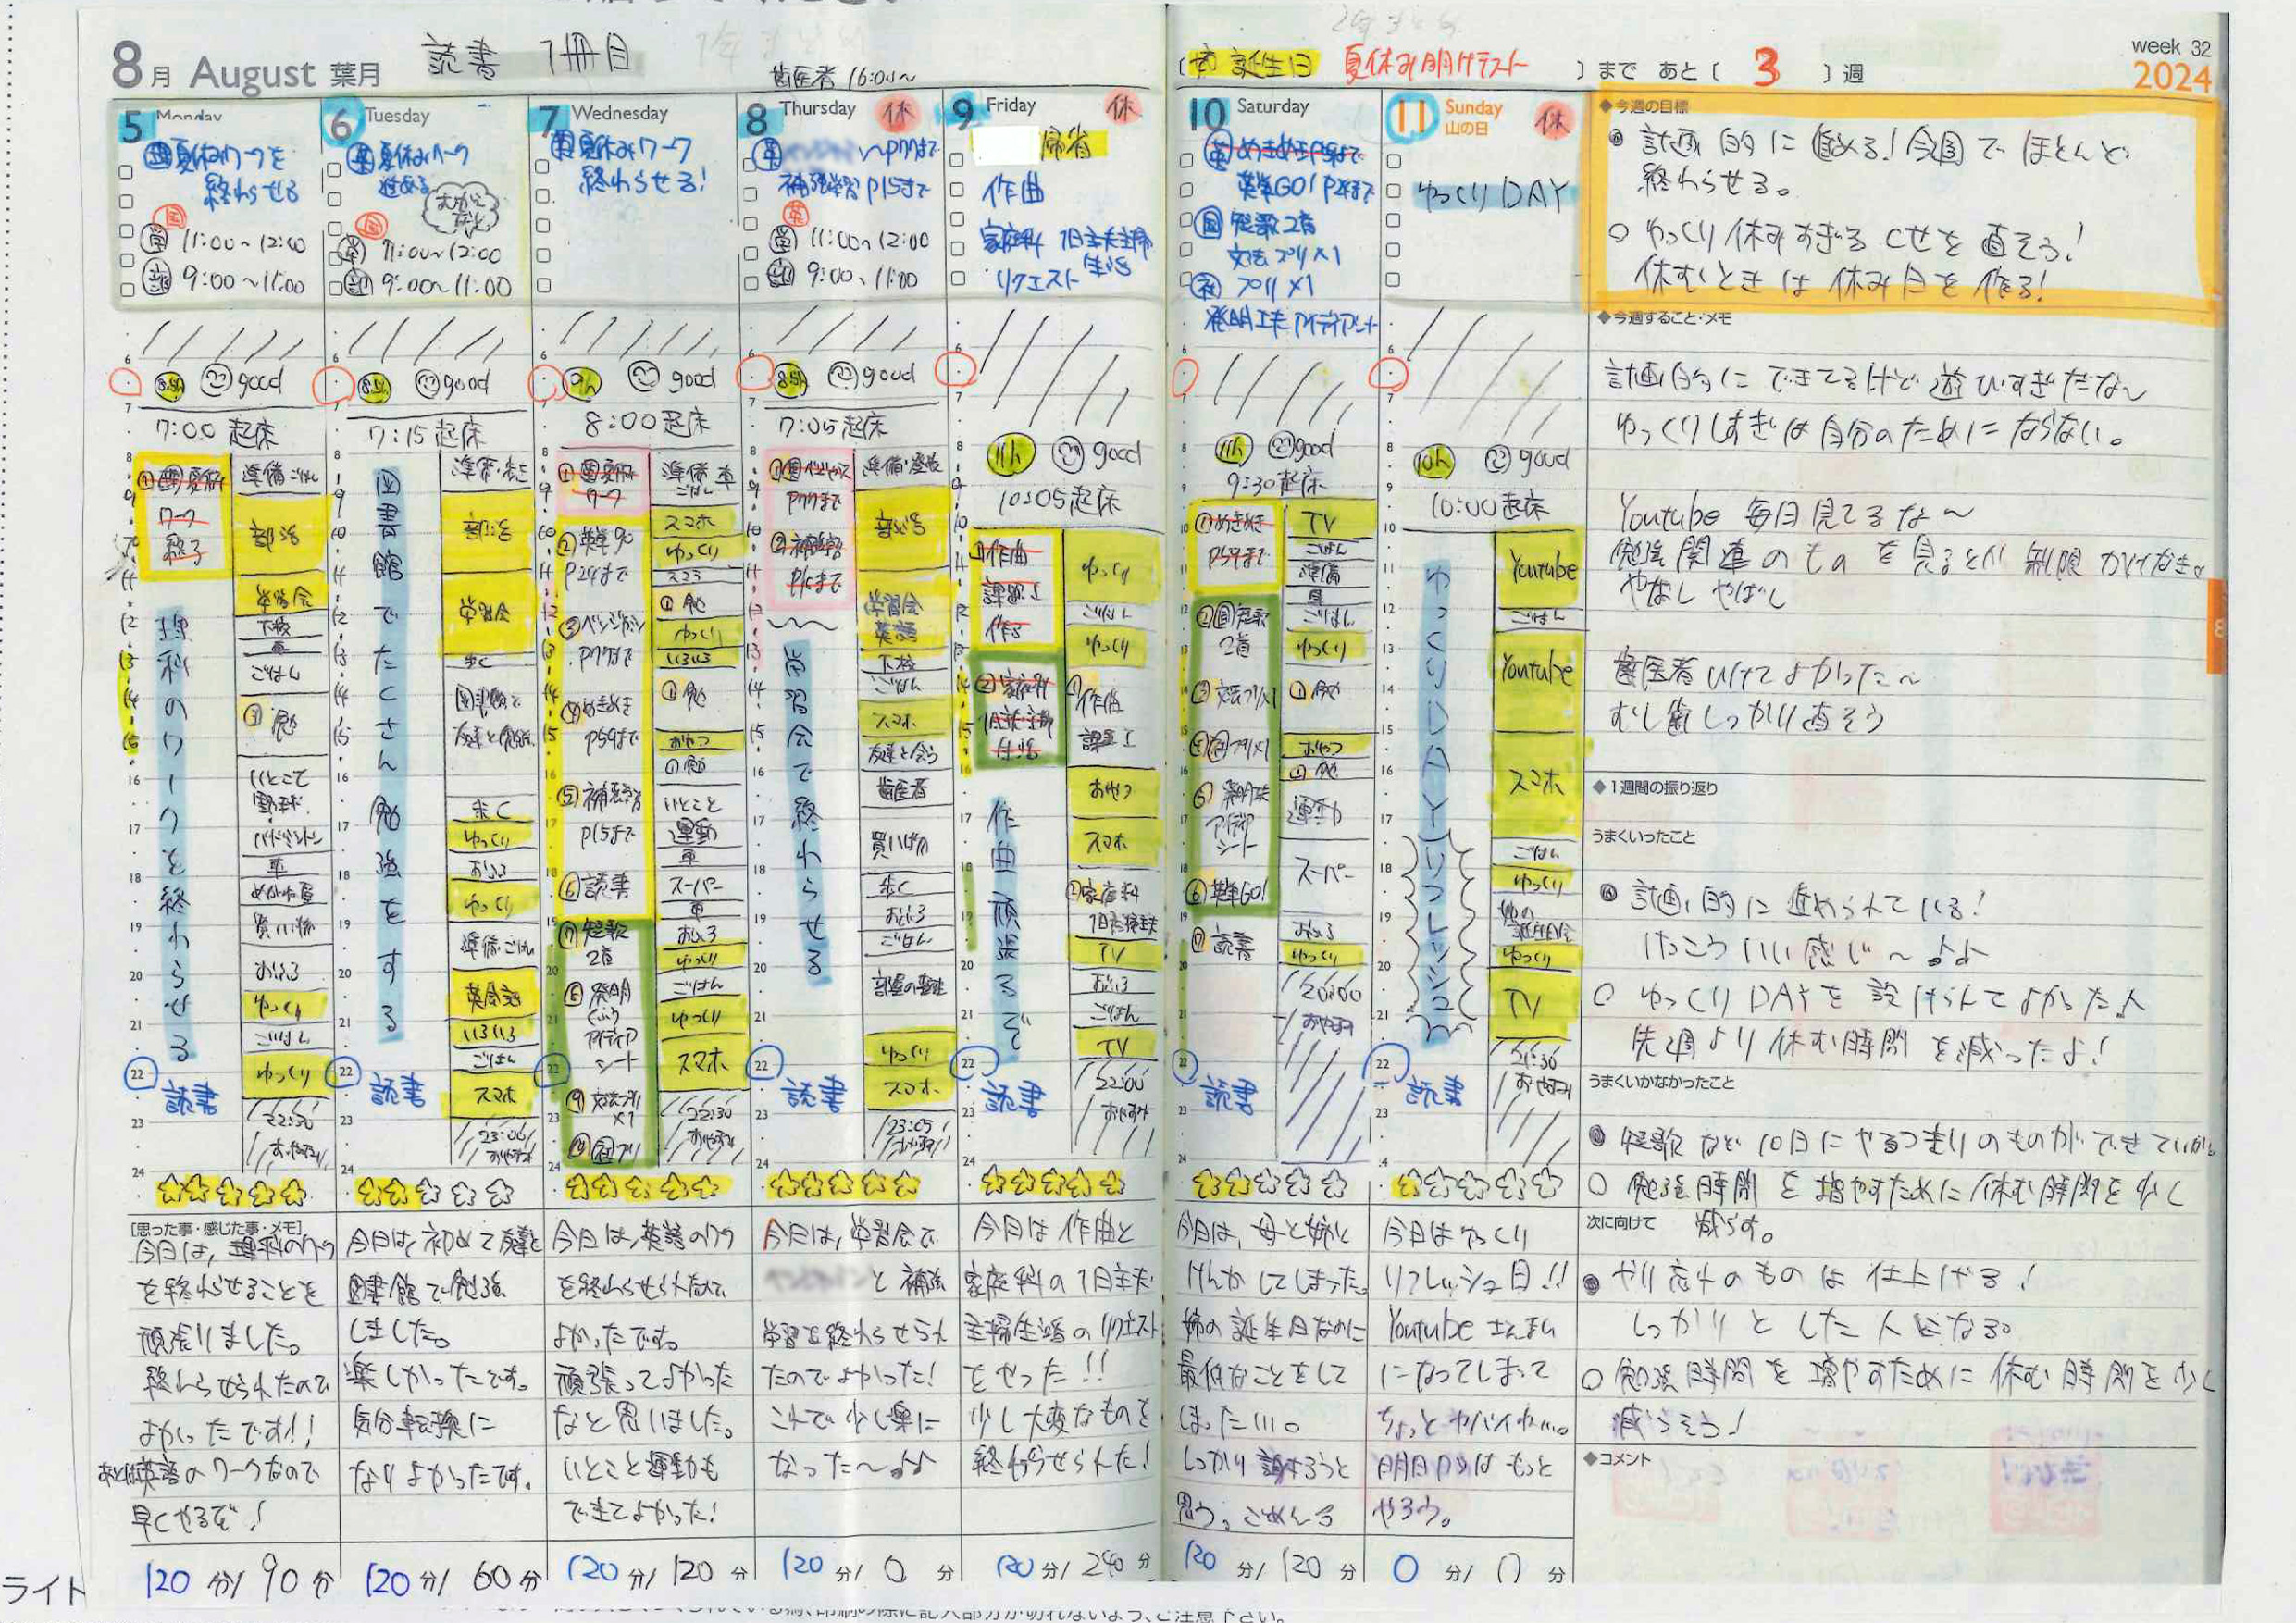 8月 August 葉月
読書 1冊目
歯医者 16:00〜
〔姉誕生日 夏休み明けテスト 〕まで あと〔 3 〕週
week 32
2024
5 Monday
理 夏休みワークを
終わらせる
国
学 11:00〜12:00
部 9:00〜11:00
8.5h good
7:00 起床
① 理 夏休み
ワーク
終了
理科のワークを終わらせる
読書
準備・ごはん
部活
学習会
下校
車
ごはん
① 勉
いとこで
野球
バドミントン
車
めがね屋
買い物
おふろ
ゆっくり
ごはん
ゆっくり
22:30
おやすみ
6 Tuesday
英 夏休みワーク
進める
国
学 11:00〜12:00
部 9:00〜11:00
8.5h good
7:15 起床
図書館でたくさん勉強をする
読書
部活
学習会
歩く
図書館で
友達と勉強
歩く
ゆっくり
おふろ
ゆっくり
準備・ごはん
英会話
いろいろ
ごはん
スマホ
23:00
おやすみ
7 Wednesday
英 夏休みワーク
終わらせる!
9h good
8:00 起床
① 英 夏休み
ワーク
② 英単GO
P24まで
P77まで
④ めきめき
P59まで
⑤ 補充学習
P15まで
⑥ 読書
⑦ 短歌
2首
⑧ 発明
くふう
アイディア
シート
⑨ 文法プリ
×1
⑩ 国プリ
準備 車
ごはん
スマホ
ゆっくり
① 勉
ゆっくり
いろいろ
① 勉
おやつ
の勉
いとこと
運動
車
スーパー
車
おふろ
ゆっくり
ごはん
ゆっくり
スマホ
22:30
おやすみ
8 Thursday 休
英 〜P77まで
補充学習 P15まで
英
学 11:00〜12:00
部 9:00〜11:00
8.5h good
7:05 起床
P77まで
② 補充学習
P15まで
学習会で終わらせる
読書
部活
学習会
英語
下校
ごはん
スマホ
友達と会う
歯医者
買いもの
歩く
おふろ
ごはん
部屋の整理
ゆっくり
スマホ
23:05
おやすみ
9 Friday 休
帰省
作曲
家庭科 1日主夫主婦
生活
リクエスト
11h good
10:05 起床
① 作曲
課題1
作る
② 家庭科
1日主夫主婦
生活
作曲頑張るぞ
読書
ゆっくり
ごはん
ゆっくり
① 作曲
課題1
おやつ
スマホ
② 家庭科
1日主婦主夫
TV
おふろ
ごはん
TV
22:00
おやすみ
10 Saturday
英 めきめきP59まで
英単GO! P24まで
国 短歌2首
文法プリ×1
社 プリ×1
発明工夫アイディアシート
11h good
9:30 起床
① めきめき
P59まで
② 国 短歌
2首
③ 文法プリ×1
⑤ 発明工夫
アイデア
シート
⑥ 英単GO!
⑦ 読書
読書
TV
ごはん
準備
車
ごはん
ゆっくり
① 勉
おやつ
① 勉
運動
スーパー
おふろ
ゆっくり
20:00
おやすみ
11 Sunday 休
山の日
ゆっくりDAY
10h good
10:00 起床
ゆっくりDAY
リフレッシュ
読書
Youtube
ごはん
Youtube
スマホ
ごはん
ゆっくり
姉の
誕生日会
ゆっくり
TV
21:30
おやすみ
◆今週の目標
◎ 計画的に進める!今週でほとんど
終わらせる。
○ ゆっくり休みすぎるくせを直そう!
休むときは休み日を作る!
◆今週すること・メモ
計画的にできてるけど遊びすぎだな〜
ゆっくりしすぎは自分のためにならない。
Youtube 毎日見てるな〜
勉強関連のものを見るとか 制限かけなきゃ
やばし やばし
歯医者いけてよかった〜
むし歯しっかり直そう
◆1週間の振り返り
うまくいったこと
◎ 計画的に進められている!
けっこういい感じ〜♪♪
○ ゆっくりDAYを設けられてよかった♪
先週より休む時間を減ったよ!
うまくいかなかったこと
◎ 短歌など10日にやるつもりのものができていない
○ 勉強時間を増やすために休む時間を少く
減らす。
次に向けて
◎ やり忘れのものは仕上げる!
しっかりとした人になる。
○ 勉強時間を増やすために休む時間を少く
減らそう!
◆コメント
[思った事・感じた事・メモ]
今日は、理科のワーク
を終わらせることを
頑張りました。
終わらせられたので
よかったです!!
あとは英語のワークなので
早くやるぞ!
今日は、初めて友達と
図書館で勉強
しました。
楽しかったです。
気分転換に
なりよかったです。
今日は、英語のワーク
を終わらせられたので
よかったです。
頑張ってよかった
なと思いました。
いとこと運動も
できてよかった!
今日は、学習会で
と補充
学習を終わらせられ
たのでよかった!
これで少し楽に
なった〜♪♪
今日は作曲と
家庭科の1日主夫
主婦生活のリクエスト
をやった!!
少し大変なものを
終わらせられた!
今日は、母と姉と
けんかしてしまった。
姉の誕生日なのに
最低なことをして
しまった…。
しっかり謝ろうと
思う。ごめんね
今日はゆっくり
リフレッシュ日!!
Youtubeざんまい
になってしまって
ちょっとヤバイわ…。
明日からはもっと
やろう。
120分/90分
120分/60分
120分/120分
120分/0分
120分/240分
120分/120分
0分/0分
ライト